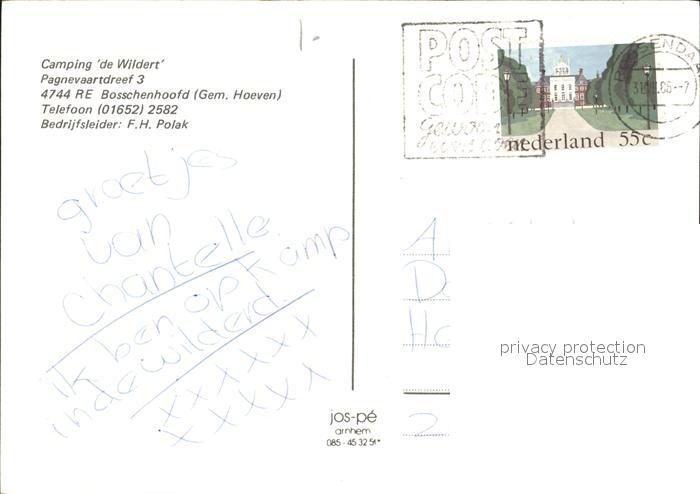 Camping 'de Wildert'
Pagnevaartdreef 3
4744 RE Bosschenhoofd (Gem. Hoeven)
Telefoon (01652) 2582
Bedrijfsleider: F.H. Polak
POST
CODE
gewoon
nederland 55c
groetjes
van
Chantelle
ik ben op kamp
in de wilderd.
xxxxxx
xxxxx
A
D
Ho
2
privacy protection
Datenschutz
jos-pé
arnhem
085-45 32 51*